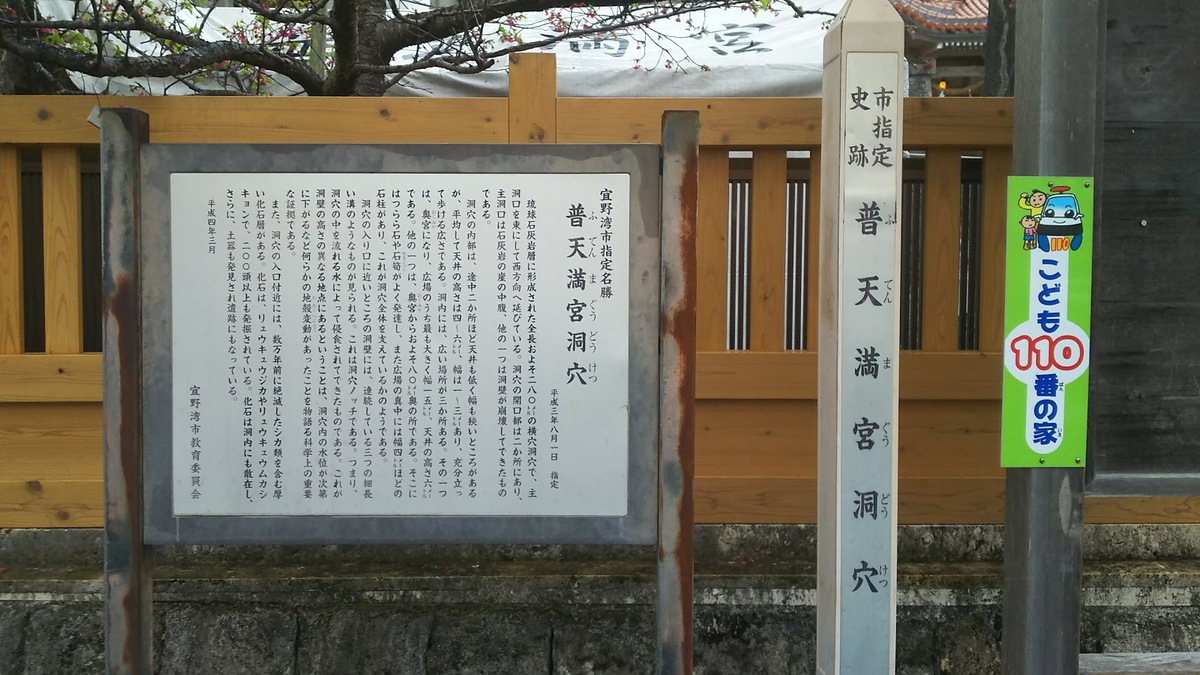 満宮
宜野湾市指定名勝
普天満宮洞穴
ふてんまぐうどうけつ
平成三年八月一日 指定
琉球石灰岩層に形成された全長およそ二八〇㍍の横穴洞穴で、主
洞口を東にして西方向へ延びている。洞穴の開口部は二か所にあり、
主洞口は石灰岩の崖の中腹、他の一つは洞壁が崩壊してできたもの
である。
洞穴の内部は、途中二か所ほど天井も低く幅も狭いところがある
が、平均して天井の高さは四〜六㍍、幅は一〜三㍍あり、充分立っ
て歩ける広さである。洞内には、広い場所が三か所ある。その一つ
は、奥宮になり、広場のうち最も大きく幅一五㍍、天井の高さ六㍍
である。他の一つは、奥宮からおよそ八〇㍍奥の所である。そこに
はつらら石や石筍がよく発達し、また広場の真中には幅四㍍ほどの
石柱があり、これが洞穴全体を支えているかのようである。
洞穴の入り口に近いところの洞壁には、連続している三つの細長
い溝のようなものが見られる。これは洞穴ノッチである。つまり、
洞穴の中を流れる水によって侵食されてできたものである。これが
洞壁の高さの異なる地点にあるということは、洞穴内の水位が次第
に下がるなど何らかの地殻変動があったことを物語る科学上の重要
な証拠である。
また、洞穴の入口付近には、数万年前に絶滅したシカ類を含む厚
い化石層がある。化石は、リュウキュウジカやリュウキュウムカシ
キョンで、二〇〇頭以上も発掘されている。化石は洞内にも散在し、
さらに、土器も発見され遺跡にもなっている。
平成四年三月
宜野湾市教育委員会
市指定
史跡
普天満宮洞穴
ふてんまぐうどうけつ
110
こども
110
番の家
ばん いえ